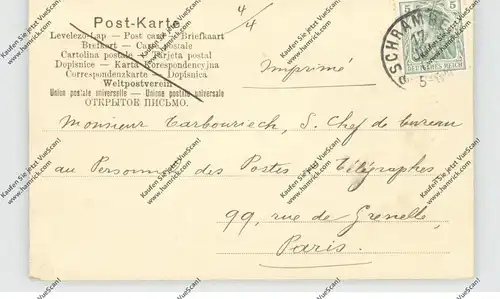 Post-Karte
Levelező-Lap — Post card — Briefkaart
Brefkort — Carte postale
Cartolina postale — Tarjeta postal
Dopisnice — Karta Korespondencyjna
Correspondenzkarte — Dopisnica
Weltpostverein
Union postale universelle — Unione postale universale
ОТКРЫТОЕ ПИСЬМО.
4/4
Imprimé
5 5
DEUTSCHES REICH
Monsieur Carbouriech, S. Chef de bureau
au Personnel des Postes et Télégraphes
99, rue de Grenelle,
Paris.
Kaufen Sie jetzt VueScan!
www.hamrick.com